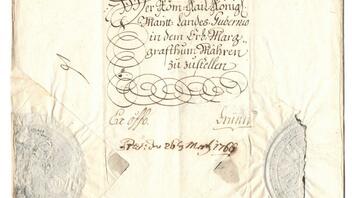 Der Röm: Kaÿ: Königl:
Maÿtt: Landes Gubernio
in dem Erb Marg=
grafthum Mähren
zu zustellen
Ex offo. Brünn
1769